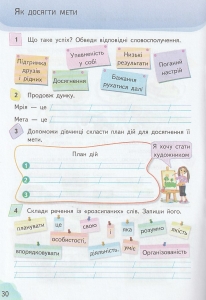 Як досягти мети
1 Що таке успіх? Обведи відповідні словосполучення.
Підтримка друзів і рідних
Упевненість у собі
Низькі результати
Поганий настрій
Досягнення
Бажання рухатися далі
2 Продовж думку.
Мрія — це
Мета — це
3 Допоможи дівчинці скласти план дій для досягнення її мети.
План дій
Я хочу стати художником
1
2
3
4 Склади речення із «розсипаних» слів. Запиши його.
планувати це свою і яка розумно якість
особистості,
впорядковувати діяльність, вміє Організованість
30